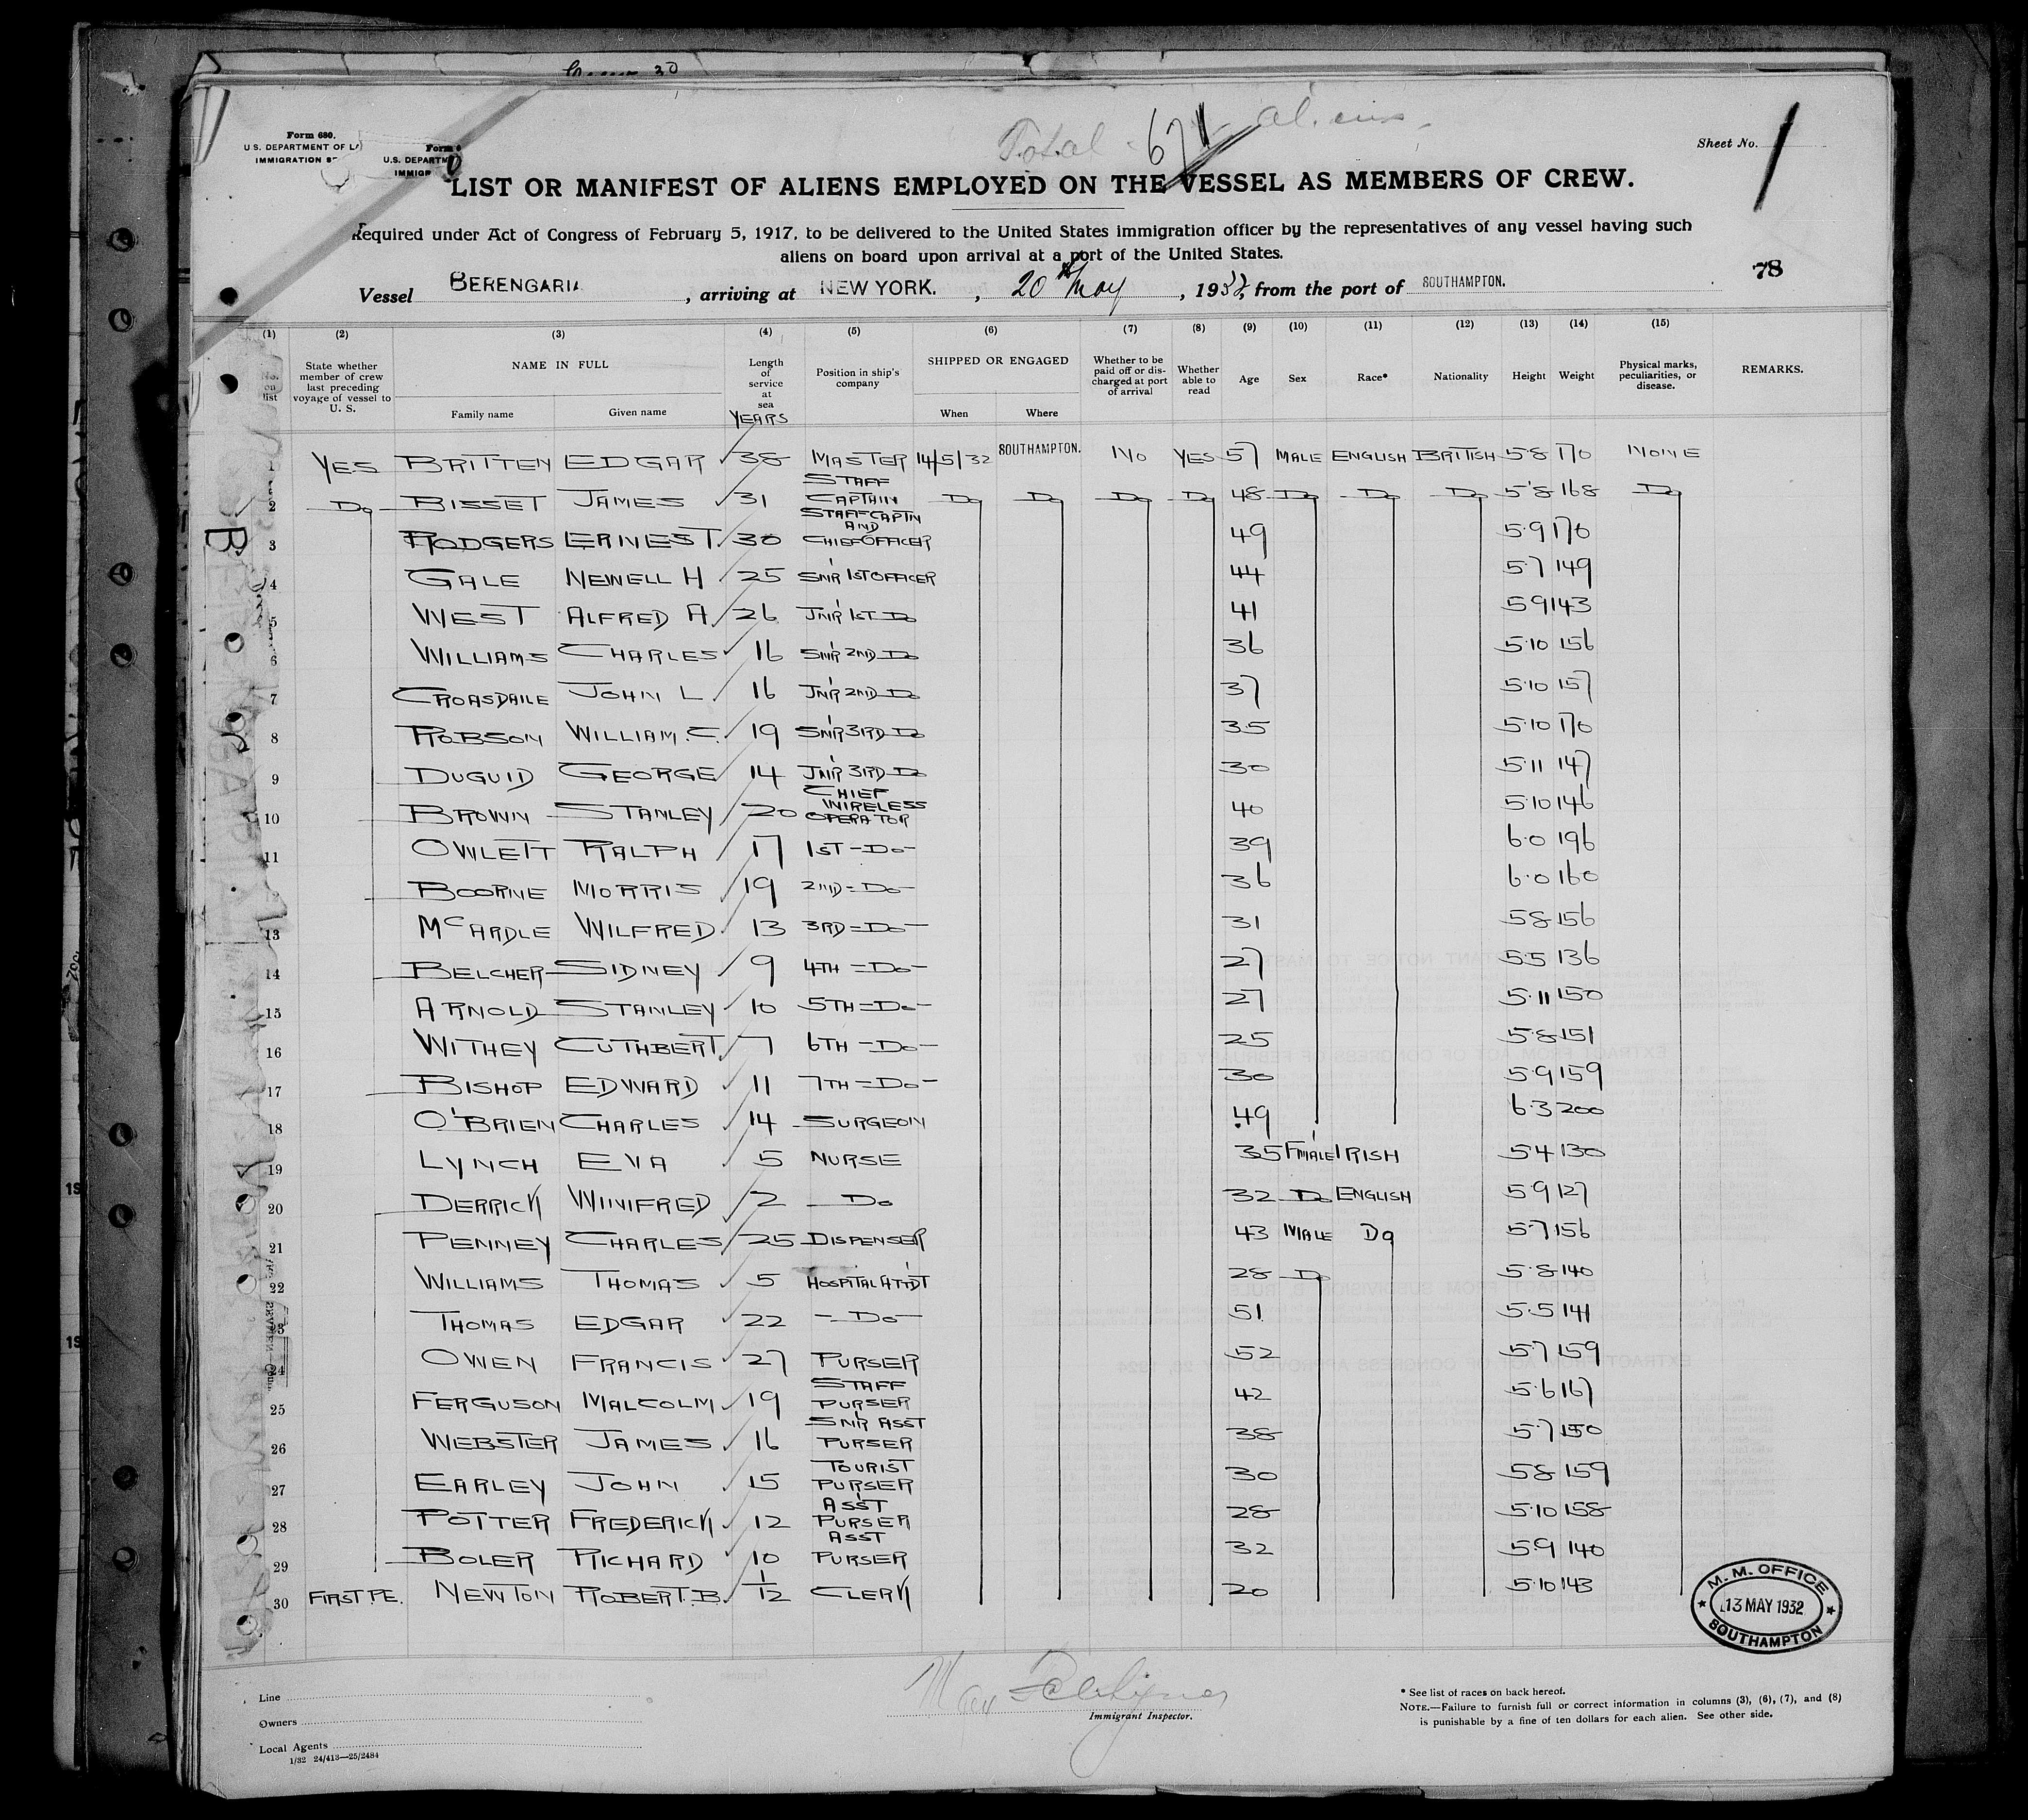 Form 680.
U.S. DEPARTMENT OF LA
IMMIGRATION SE
Form
U.S. DEPARTM
IMMIGR
Total 671 aliens
Sheet No. 1
LIST OR MANIFEST OF ALIENS EMPLOYED ON THE VESSEL AS MEMBERS OF CREW.
Required under Act of Congress of February 5, 1917, to be delivered to the United States immigration officer by the representatives of any vessel having such
aliens on board upon arrival at a port of the United States.
78
Vessel BERENGARIA, arriving at NEW YORK., 20th May, 1932, from the port of SOUTHAMPTON.
(1) (2) (3) (4) (5) (6) (7) (8) (9) (10) (11) (12) (13) (14) (15)
No. on list State whether member of crew last preceding voyage of vessel to U. S. NAME IN FULL Family name Given name Length of service at sea YEARS Position in ship's company SHIPPED OR ENGAGED When Where Whether to be paid off or discharged at port of arrival Whether able to read Age Sex Race* Nationality Height Weight Physical marks, peculiarities, or disease. REMARKS.
1 YES BRITTEN EDGAR 38 MASTER 14/5/32 SOUTHAMPTON. NO YES 57 MALE ENGLISH BRITISH 5·8 170 NONE
2 Do BISSET JAMES 31 STAFF CAPTAIN Do Do Do Do 48 Do Do Do 5'8 168 Do
3 RODGERS ERNEST. 30 STAFF CAPTN AND CHIEF OFFICER 49 5·9 170
4 GALE NEWELL H 25 SNR 1ST OFFICER 44 5·7 149
5 WEST ALFRED A. 26 JNR 1ST Do 41 5·9 143
6 WILLIAMS CHARLES 16 SNR 2ND Do 36 5·10 156
7 CROASDAILE JOHN L. 16 JNR 2ND Do 37 5·10 157
8 ROBSON WILLIAM. C. 19 SNR 3RD Do 35 5·10 170
9 DUGUID GEORGE 14 JNR 3RD Do 30 5·11 147
10 BROWN STANLEY 20 CHIEF WIRELESS OPERATOR 40 5·10 146
11 OWLETT RALPH 17 1ST -Do- 39 6·0 196
12 BOORNE MORRIS 19 2ND -Do- 36 6·0 160
13 McARDLE WILFRED. 13 3RD -Do- 31 5·8 156
14 BELCHER SIDNEY 9 4TH -Do- 27 5·5 136
15 ARNOLD STANLEY 10 5TH -Do- 27 5·11 150
16 WITHEY CUTHBERT. 7 6TH -Do- 25 5·8 151
17 BISHOP EDWARD 11 7TH -Do- 30 5·9 159
18 O'BRIEN CHARLES 14 SURGEON 49 6·3 200
19 LYNCH EVA 5 NURSE 35 F'MALE IRISH 5·4 130
20 DERRICK WINIFRED 2 Do 32 Do ENGLISH 5·9 127
21 PENNEY CHARLES 25 DISPENSER 43 MALE Do 5·7 156
22 WILLIAMS THOMAS 5 HOSPITAL ATT'DT 28 Do 5·8 140
23 THOMAS EDGAR 22 -Do- 51 5·5 141
24 OWEN FRANCIS 27 PURSER 52 5·7 159
25 FERGUSON MALCOLM 19 STAFF PURSER 42 5·6 167
26 WEBSTER JAMES 16 SNR ASST PURSER 38 5·7 150
27 EARLEY JOHN 15 TOURIST PURSER 30 5·8 159
28 POTTER FREDERICK 12 ASST PURSER 28 5·10 158
29 BOLER RICHARD 10 ASST PURSER 32 5·9 140
30 FIRST PE. NEWTON ROBERT. B. 1/12 CLERK 20 5·10 143
M. M. OFFICE
13 MAY 1932
SOUTHAMPTON
Line
Owners
Local Agents
1/32 24/413—25/2484
Immigrant Inspector.
* See list of races on back hereof.
NOTE.—Failure to furnish full or correct information in columns (3), (6), (7), and (8)
is punishable by a fine of ten dollars for each alien. See other side.